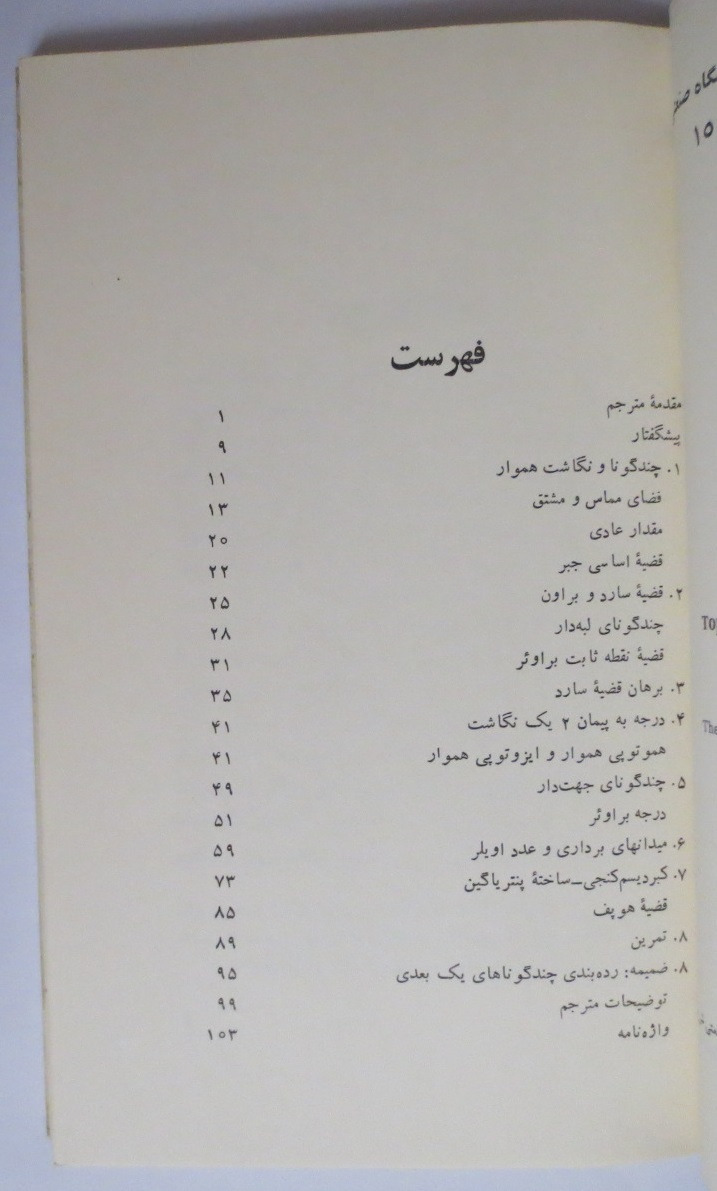 فهرست
مقدمهٔ مترجم ۱
پیشگفتار ۹
۱. چندگونا و نگاشت هموار ۱۱
فضای مماس و مشتق ۱۳
مقدار عادی ۲۰
قضیهٔ اساسی جبر ۲۲
۲. قضیهٔ سارد و براون ۲۵
چندگونای لبه‌دار ۲۸
قضیهٔ نقطه ثابت براوئر ۳۱
۳. برهان قضیهٔ سارد ۳۵
۴. درجه به پیمان ۲ یک نگاشت ۴۱
هموتوپی هموار و ایزوتوپی هموار ۴۱
۵. چندگونای جهت‌دار ۴۹
درجه براوئر ۵۱
۶. میدانهای برداری و عدد اویلر ۵۹
۷. کبردیسم کنجی_ساختهٔ پنتریاگین ۷۳
قضیهٔ هوپف ۸۵
۸. تمرین ۸۹
۸. ضمیمه: رده‌بندی چندگوناهای یک بعدی ۹۵
توضیحات مترجم ۹۹
واژه‌نامه ۱۰۳
۱۵